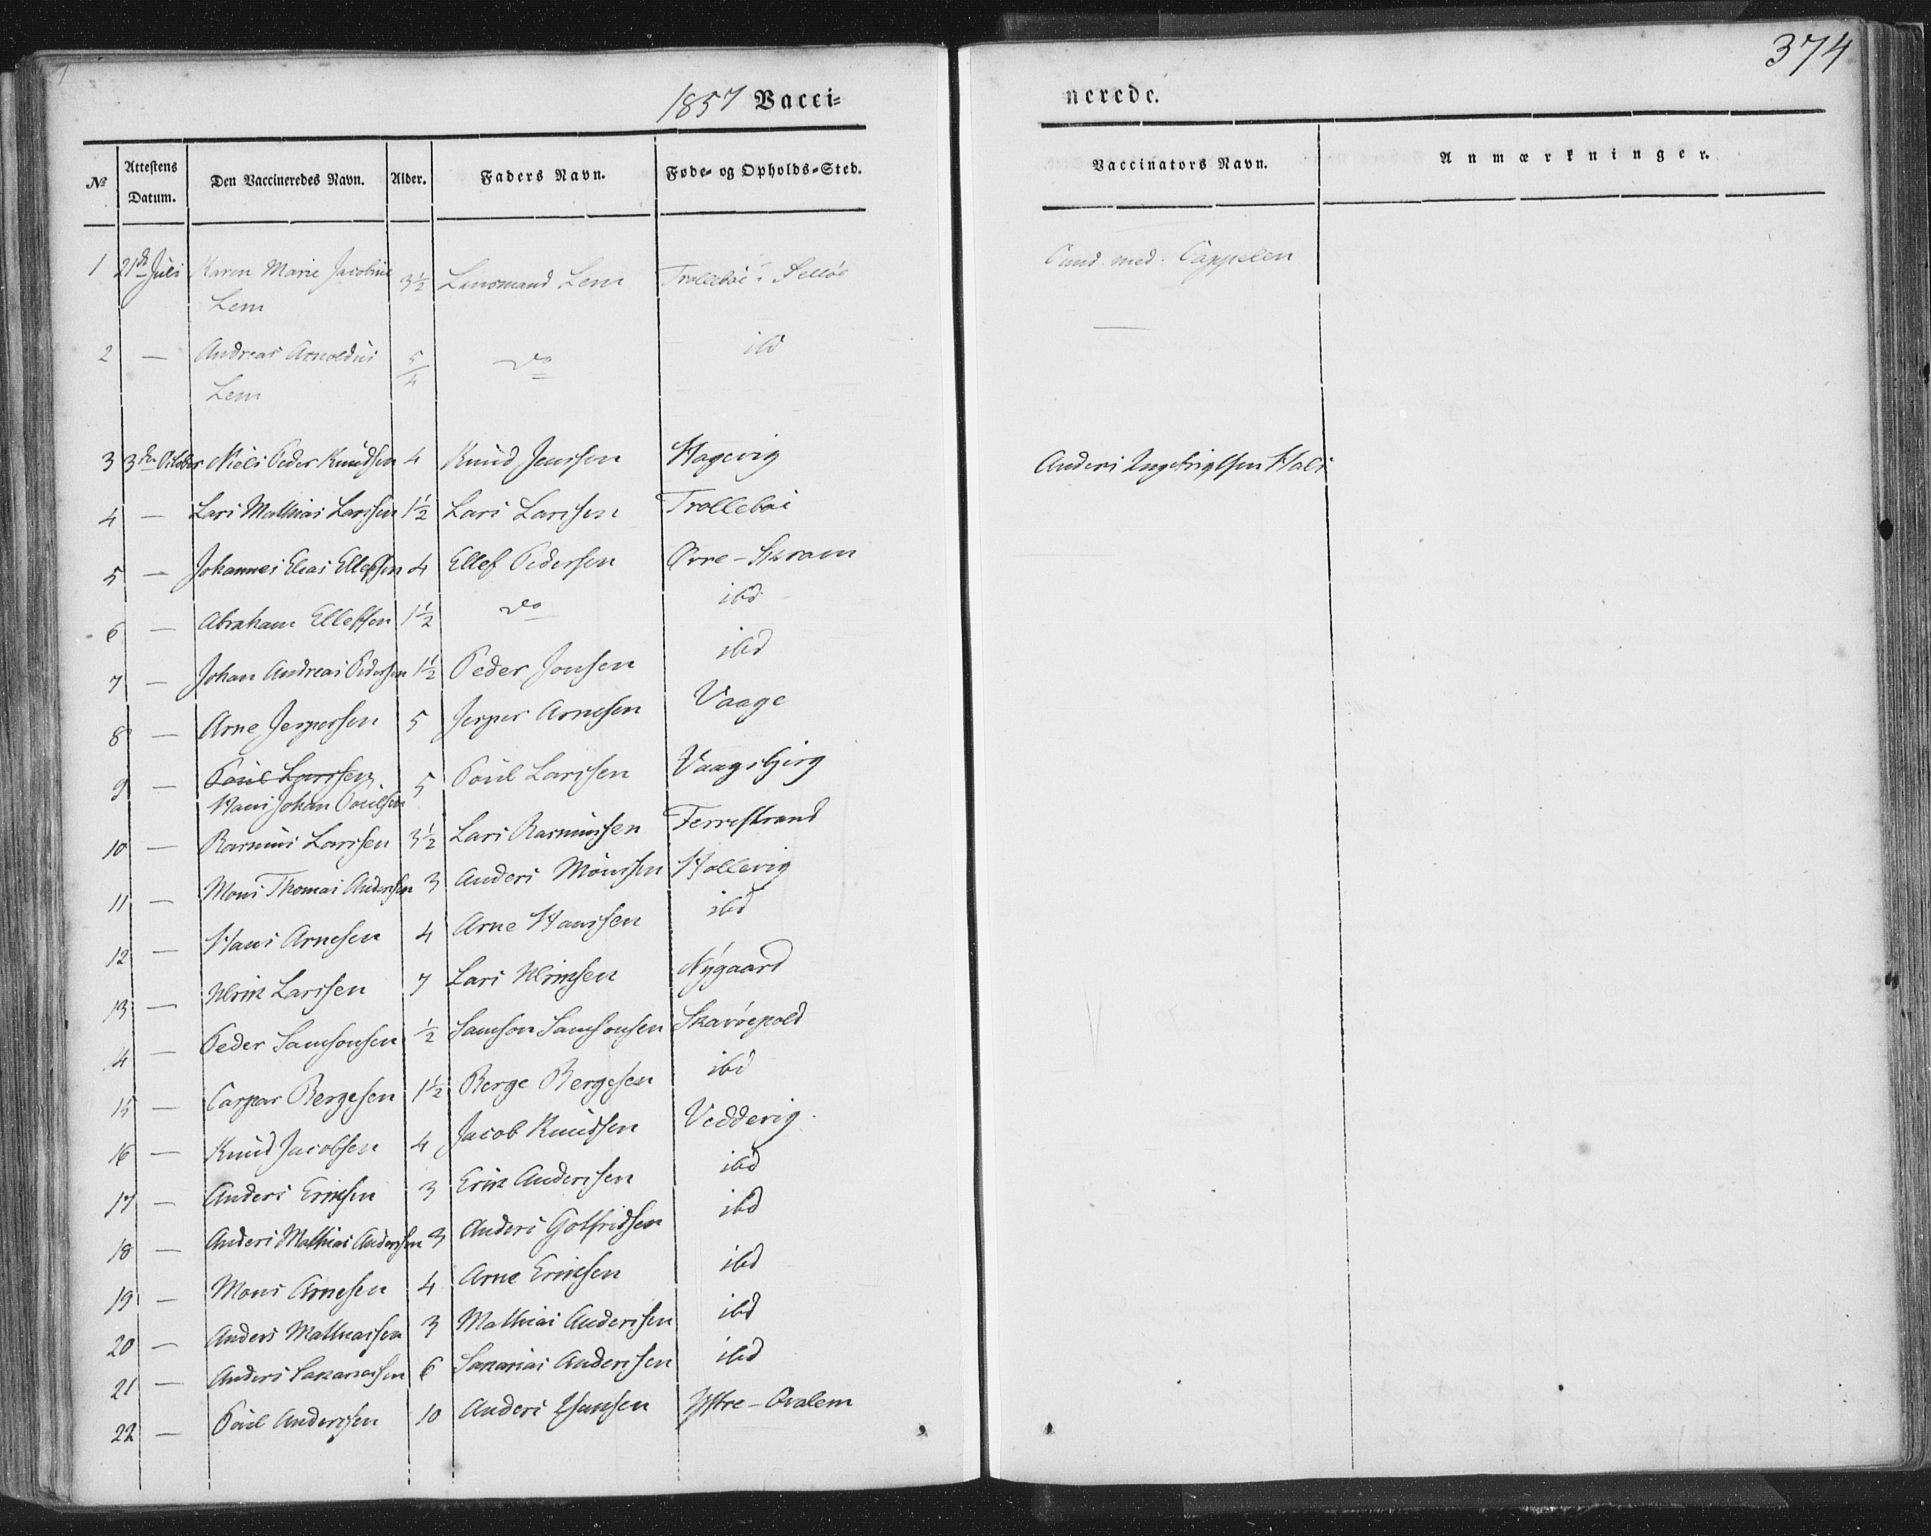 374
1857 Vacci=
nerede.
No Attestens Datum. Den Vaccineredes Navn. Alder. Faders Navn. Føde- og Opholds-Sted. Vaccinators Navn. Anmærkninger.
1 21de Juli Karen Marie Jacobine 3½ Lensmand Lem Trolleboe i Selløe Cand. med. Cappelen
Lem
2 — Andreas Arnoldus 5/4 do ibd —
Lem
3 3die October Niels Peder Knudsen 4 Knud Jensen Hagevig Anders Ingebrigtsen Hals
4 — Lars Mathias Larssen 1½ Lars Larssen Trolleboe
5 — Johannes Elias Ellefsen 4 Ellef Pedersen Øvre-Skram
6 — Abraham Ellefsen 1½ do ibd
7 — Johan Andreas Pedersen 1½ Peder Jonsen ibd
8 — Arne Jespersen 5 Jesper Arnesen Vaage
9 — Poul Larssen 5 Poul Larssen Vaagsbjerg
Hans Johan Poulsen
10 — Rasmus Larssen 3½ Lars Rasmussen Ferrestrand
11 — Mons Thomas Andersen 3 Anders Mønssen Hollevig
12 — Hans Arnesen 4 Arne Hanssen ibd
13 — Ulrik Larssen 7 Lars Ulriksen Nygaard
14 — Peder Samsonsen ½ Samson Samsonsen Skavøepold
15 — Caspar Bergesen 1½ Berge Bergesen ibd
16 — Knud Jacobsen 4 Jacob Knudsen Vedvig
17 — Anders Eriksen 3 Erik Anderssen ibd
18 — Anders Mathias Anderssen 3 Anders Gotfridsen ibd
19 — Mons Arnesen 4 Arne Eriksen ibd
20 — Anders Mathiassen 3 Mathias Anderssen ibd
21 — Anders Sakariassen 6 Sakarias Anderssen ibd
22 — Poul Anderssen 10 Anders Ytre-Qvalem